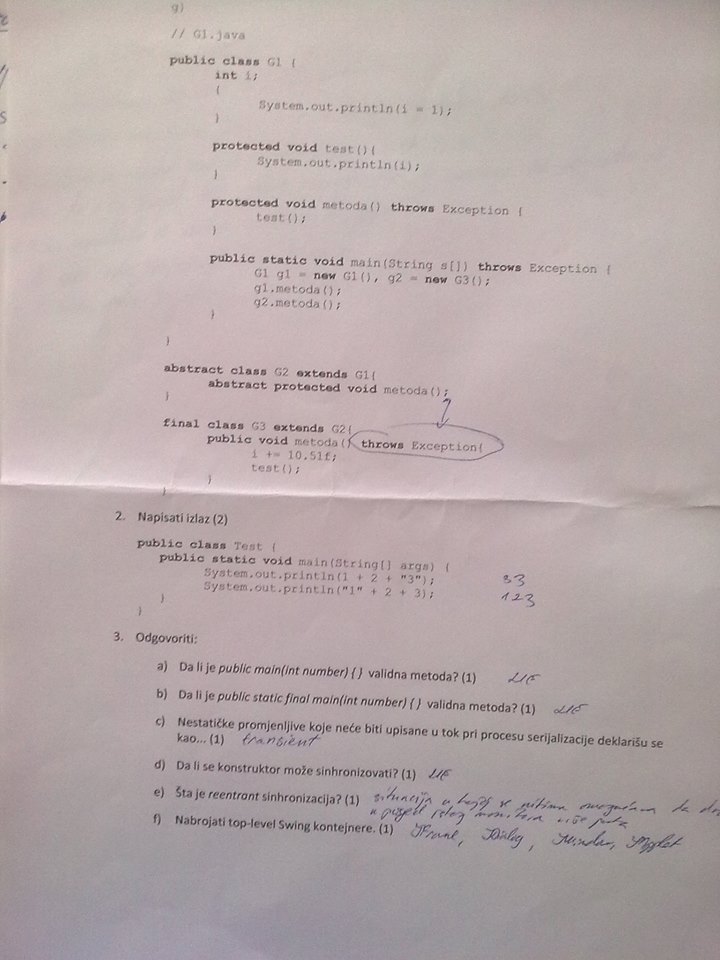 g)
// G1.java
public class G1 {
int i;
{
System.out.println(i = 1);
}
protected void test(){
System.out.println(i);
}
protected void metoda() throws Exception {
test();
}
public static void main(String s[]) throws Exception {
G1 g1 = new G1(), g2 = new G3();
g1.metoda();
g2.metoda();
}
}
abstract class G2 extends G1{
abstract protected void metoda();
}
final class G3 extends G2{
public void metoda() throws Exception{
i += 10.51f;
test();
}
}
2. Napisati izlaz (2)
public class Test {
public static void main(String[] args) {
System.out.println(1 + 2 + "3"); 33
System.out.println("1" + 2 + 3); 123
}
}
3. Odgovoriti:
a) Da li je public main(int number) { } validna metoda? (1) NE
b) Da li je public static final main(int number) { } validna metoda? (1) NE
c) Nestatičke promjenljive koje neće biti upisane u tok pri procesu serijalizacije deklarišu se
kao... (1) transient
d) Da li se konstruktor može sinhronizovati? (1) NE
e) Šta je reentrant sinhronizacija? (1) situacija u kojoj se nitima omogućava da
u posjed istog monitora više puta
f) Nabrojati top-level Swing kontejnere. (1) JFrame, JDialog, JWindow, JApplet